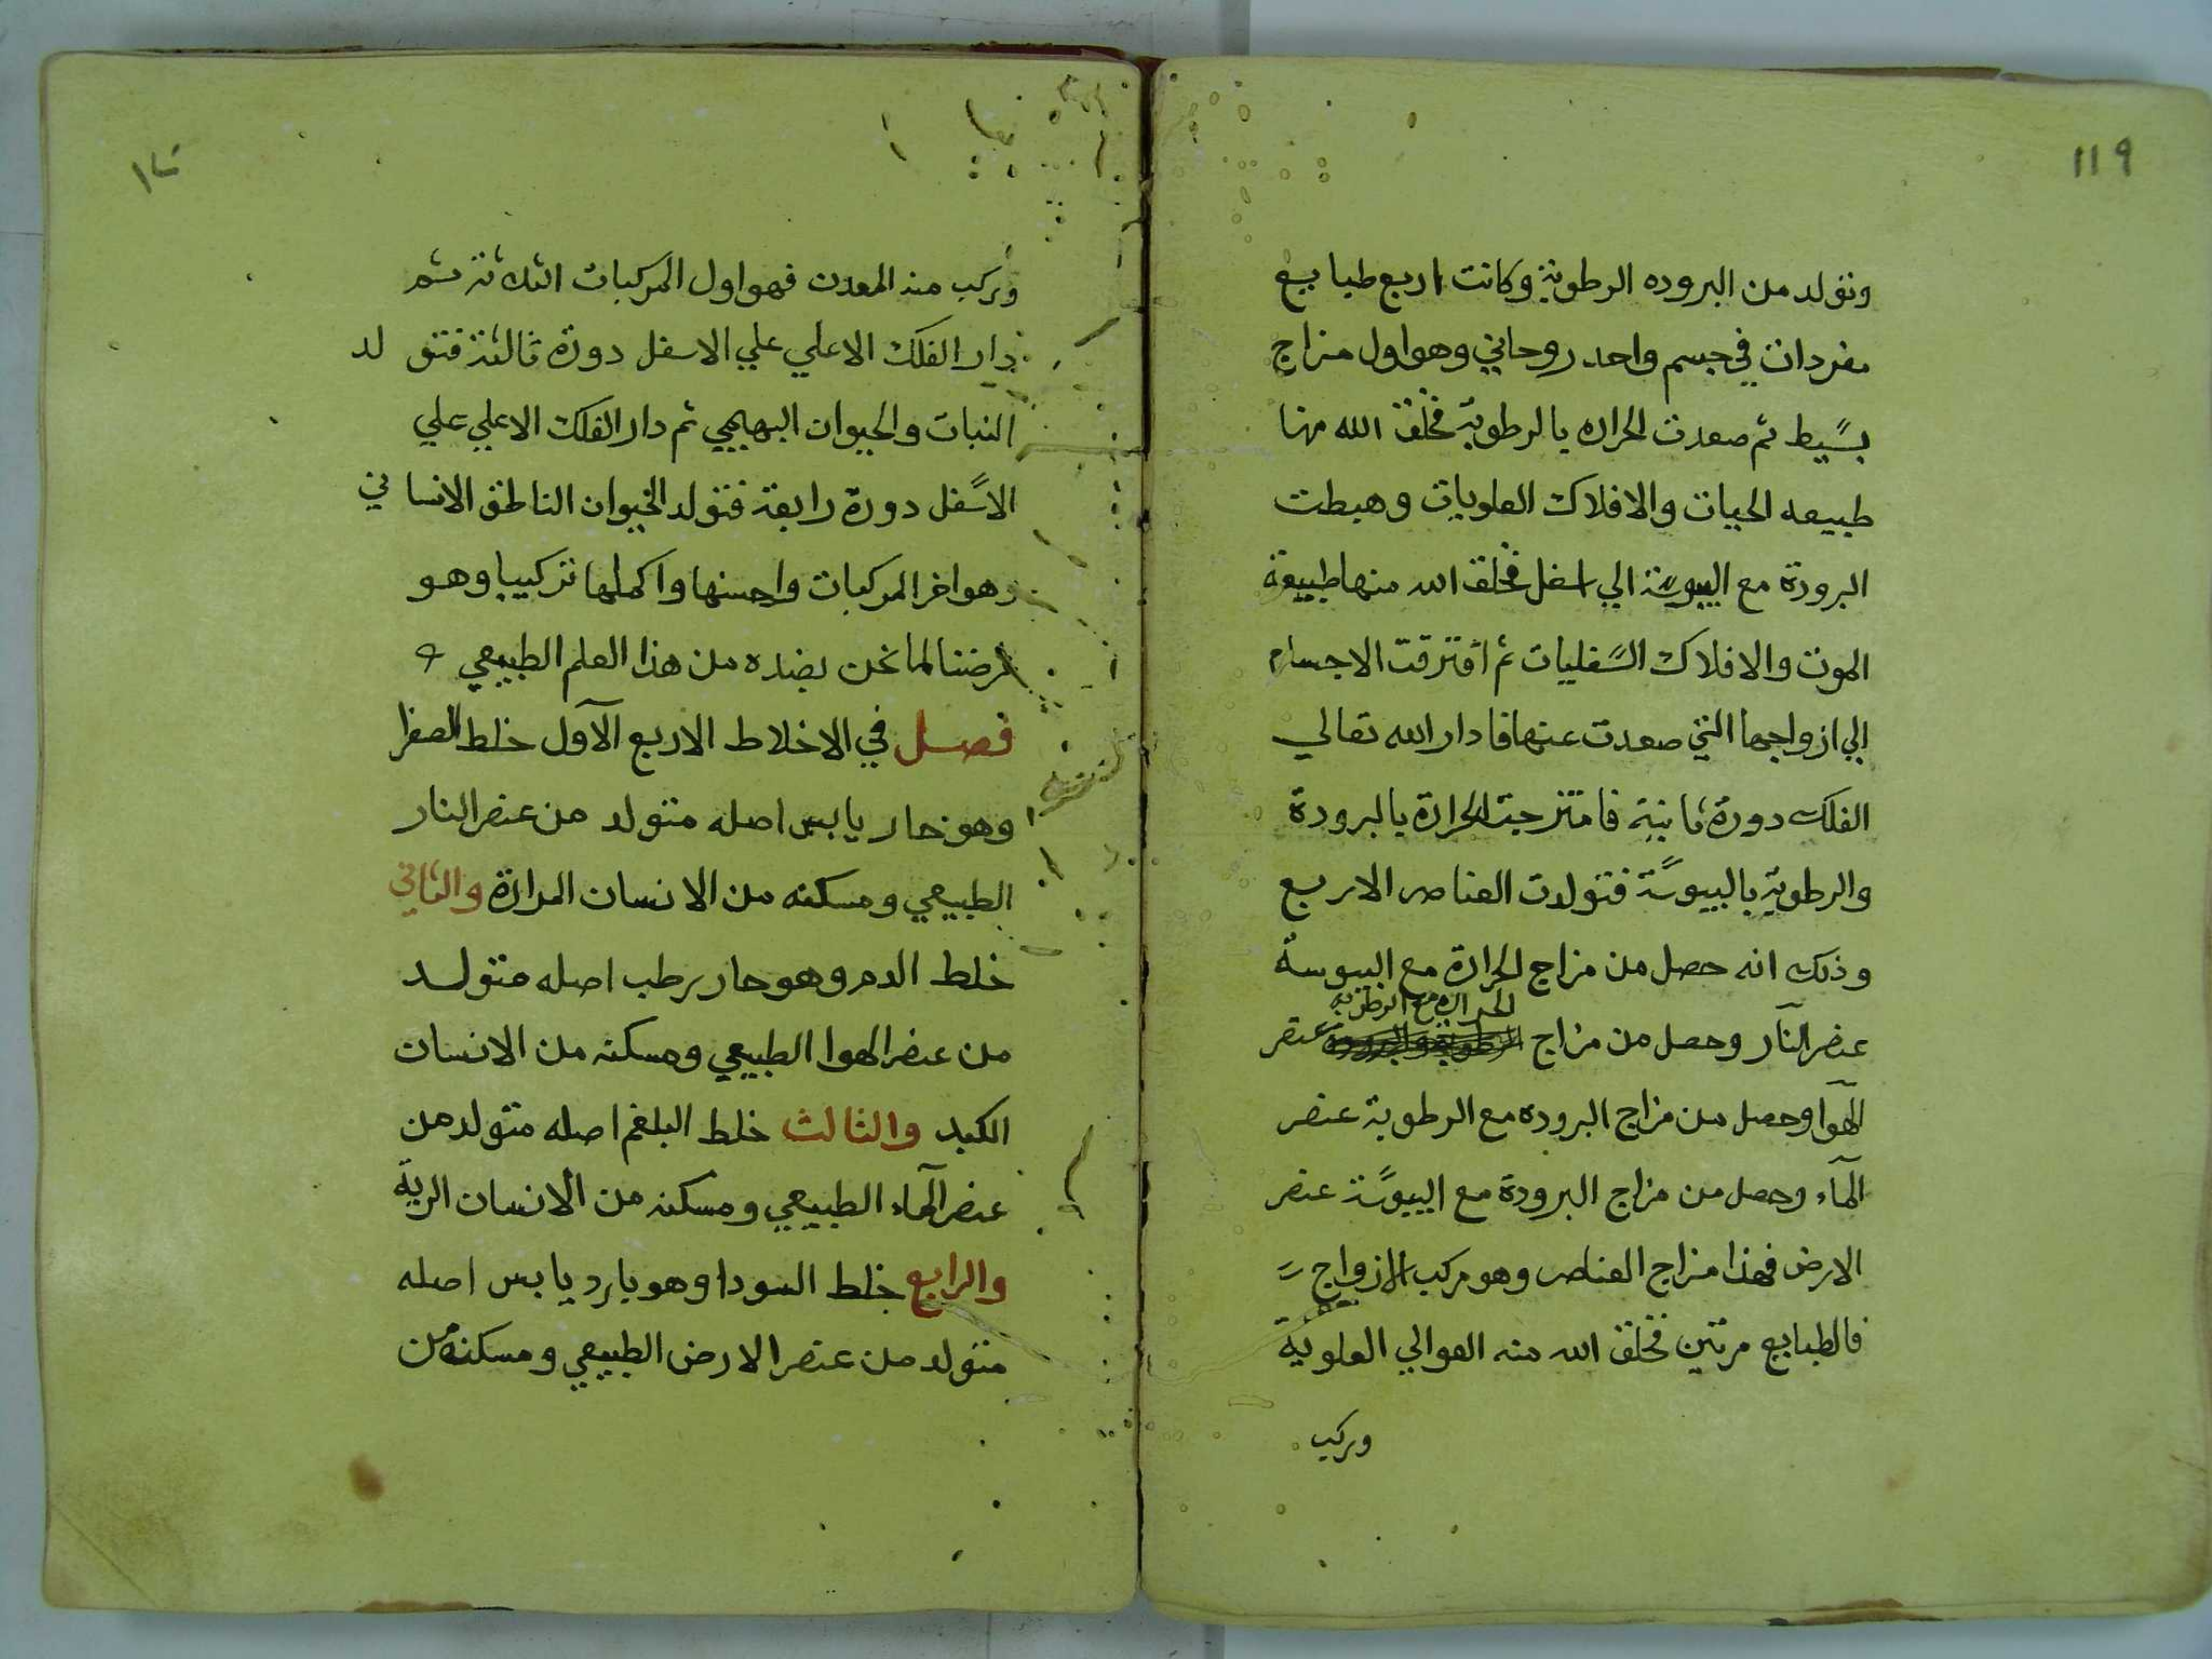 ١١٩
وتولد من البروده الرطوبة وكانت اربع طبايع
مفردات في جسم واحد روحاني وهو اول مزاج
بسيط ثم صعدت الحراره بالرطوبة فخلق الله منها
طبيعه الحيات والافلاك العلويات وهبطت
البرودة مع اليبوسة الي اسفل فخلق الله منها طبيعة
الموت والافلاك السفليات ثم افترقت الاجسام
الي ازواجها التي صعدت عنها فادار الله تعالي
الفلك دورة ثانية فامتزجت الحرارة بالبرودة
والرطوبة باليبوسة فتولدت العناصر الاربع
وذلك انه حصل من مزاج الحرارة مع اليبوسة
الحراره مع الرطوبه
عنصر النار وحصل من مزاج الرطوبة والبرودة عنصر
الهوا وحصل من مزاج البروده مع الرطوبة عنصر
الماء وحصل من مزاج البرودة مع اليبوسة عنصر
الارض فهذا مزاج العناصر وهو مركب الازواج
فالطبايع مرتين فخلق الله منه العوالي العلوية
وركب
١٢٠
وركب منه المعدن فهو اول المركبات الثلاثة ثم
دار الفلك الاعلي علي الاسفل دورة ثالثة فتولد
النبات والحيوان البهيمي ثم دار الفلك الاعلي علي
الاسفل دورة رابعة فتولد الحيوان الناطق الانساني
وهو اخر المركبات واحسنها واكملها تركيبا وهو
غرضنا لما نحن بصدده من هذا العلم الطبيعي
فصل في الاخلاط الاربع الاول خلط الصفرا
وهو حار يابس اصله متولد من عنصر النار
الطبيعي ومسكنه من الانسان المرارة والثاني
خلط الدم وهو حار رطب اصله متولد
من عنصر الهوا الطبيعي ومسكنه من الانسان
الكبد والثالث خلط البلغم اصله متولد من
عنصر الماء الطبيعي ومسكنه من الانسان الرية
والرابع خلط السودا وهو بارد يابس اصله
متولد من عنصر الارض الطبيعي ومسكنه من